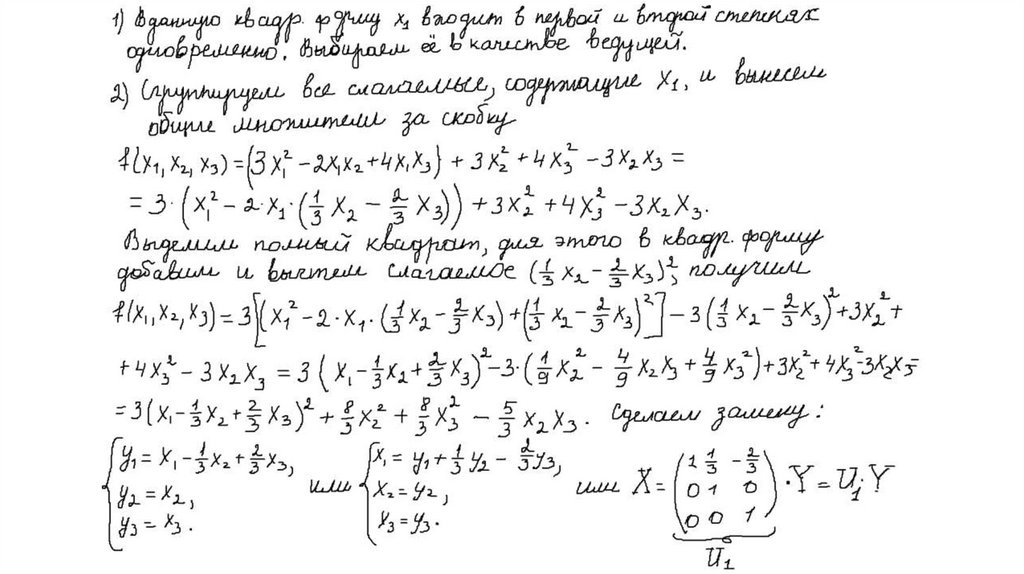 1) В данную квадр. форму x₁ входит в первой и второй степенях
одновременно. Выбираем её в качестве ведущей.
2) Сгруппируем все слагаемые, содержащие x₁, и вынесем
общие множители за скобку
f(x₁, x₂, x₃) = (3x₁² − 2x₁x₂ + 4x₁x₃) + 3x₂² + 4x₃² − 3x₂x₃ =
= 3·(x₁² − 2·x₁·(1/3 x₂ − 2/3 x₃)) + 3x₂² + 4x₃² − 3x₂x₃.
Выделим полный квадрат, для этого в квадр. форму
добавим и вычтем слагаемое (1/3 x₂ − 2/3 x₃)², получим
f(x₁, x₂, x₃) = 3[(x₁² − 2·x₁·(1/3 x₂ − 2/3 x₃) + (1/3 x₂ − 2/3 x₃)²] − 3(1/3 x₂ − 2/3 x₃)² + 3x₂² +
+ 4x₃² − 3x₂x₃ = 3(x₁ − 1/3 x₂ + 2/3 x₃)² − 3·(1/9 x₂² − 4/9 x₂x₃ + 4/9 x₃²) + 3x₂² + 4x₃² − 3x₂x₃ =
= 3(x₁ − 1/3 x₂ + 2/3 x₃)² + 8/3 x₂² + 8/3 x₃² − 5/3 x₂x₃. Сделаем замену:
{ y₁ = x₁ − 1/3 x₂ + 2/3 x₃,
y₂ = x₂,
y₃ = x₃.
или
{ x₁ = y₁ + 1/3 y₂ − 2/3 y₃,
x₂ = y₂,
x₃ = y₃.
или X = (1 1/3 −2/3
0 1 0
0 0 1) · Y = U₁·Y
U₁